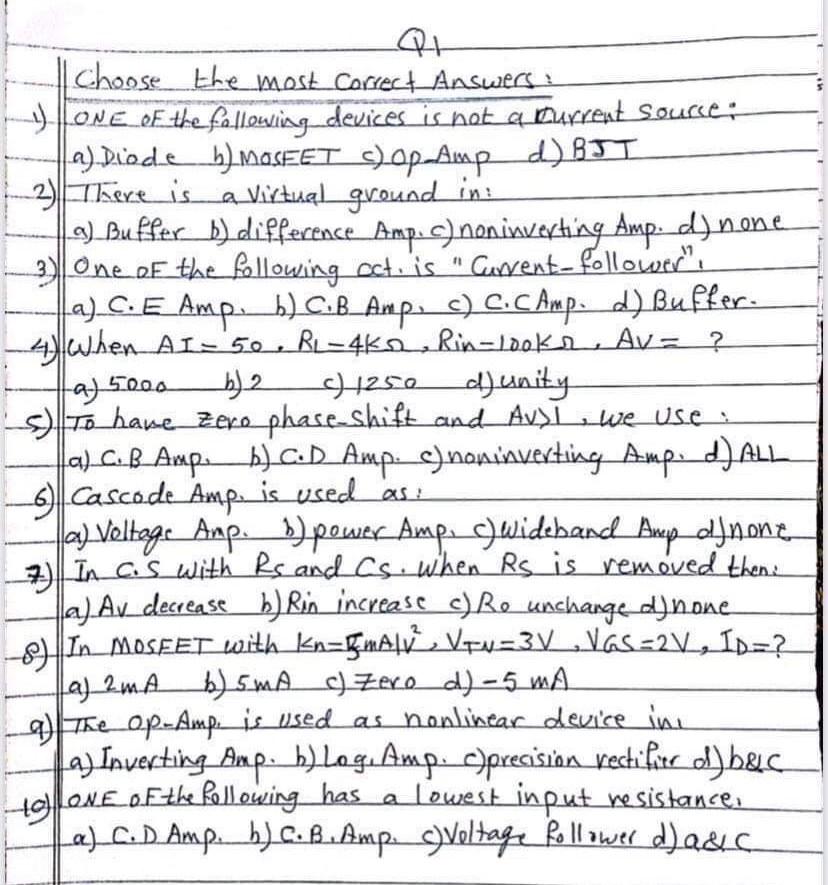 Q1
Choose the most Correct Answers:
1) ONE OF the following devices is not a current source:
a) Diode b) MOSFET c) Op-Amp d) BJT
2) There is a virtual ground in:
a) Buffer b) difference Amp. c) noninverting Amp. d) none
3) One OF the following cct. is "Current-follower".
a) C.E Amp. b) C.B Amp. c) C.C Amp. d) Buffer.
4) When AI = 50, RL = 4KΩ, Rin = 100KΩ, AV = ?
a) 5000 b) 2 c) 1250 d) unity
5) To have zero phase-shift and AV>1, we use:
a) C.B Amp. b) C.D Amp. c) noninverting Amp. d) ALL
6) Cascode Amp. is used as:
a) Voltage Amp. b) power Amp. c) wideband Amp d) none
7) In C.S with Rs and Cs. when Rs is removed then:
a) Av decrease b) Rin increase c) Ro unchange d) none
8) In MOSFET with Kn=5mA/V², VTN=3V, VGS=2V, ID=?
a) 2mA b) 5mA c) Zero d) -5 mA
9) The op-Amp. is used as nonlinear device in:
a) Inverting Amp. b) Log. Amp. c) precision rectifier d) b&c
10) ONE OF the following has a lowest input resistance.
a) C.D Amp. b) C.B. Amp. c) Voltage follower d) a&c